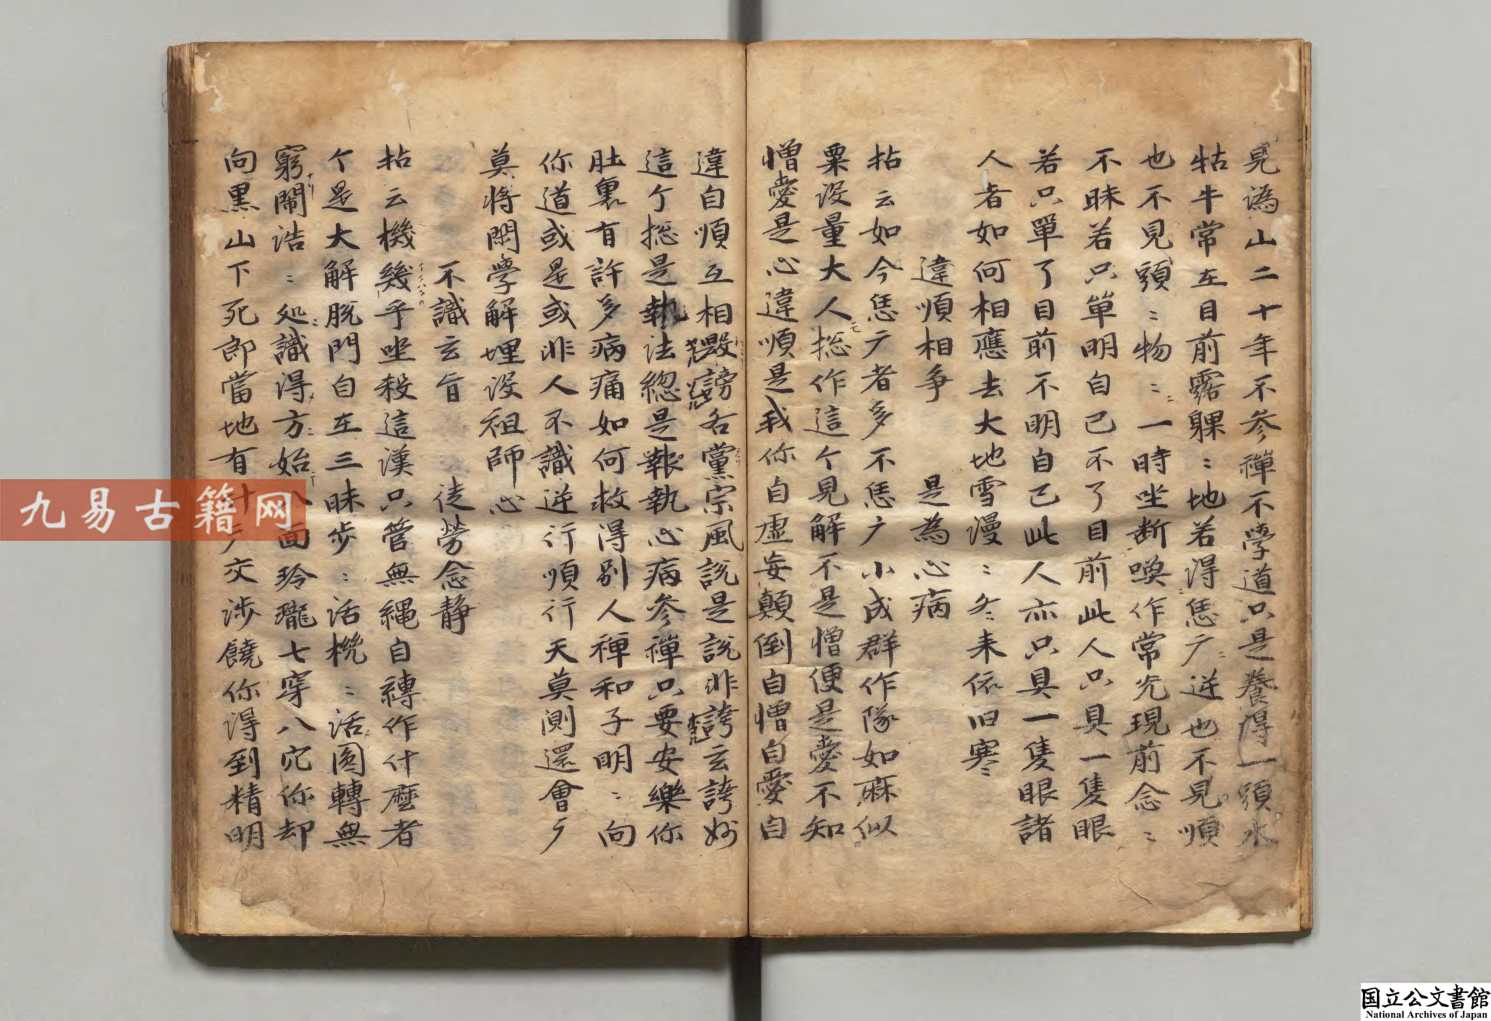 見溈山二十年不参禪不學道只是養得一頭水
牯牛常在目前露躶〻地若得恁广逆也不見順
也不見頭〻物〻一時坐断喚作常光現前念〻
不昧若只單明自己不了目前此人只具一隻眼
若只單了目前不明自己此人亦只具一隻眼諸
人者如何相應去大地雪漫〻冬来依旧寒
違順相争　是為心病
拈云如今恁广者多不恁广小成群作隊如麻似
粟没量大人揔作這个見解不是憎便是愛不知
憎愛是心違順是我你自虚妄顛倒自憎自愛自
違自順互相毀謗各黨宗風説是説非誇玄誇妙
這个揔是執法總是報執心病参禪只要安樂你
肚裏有許多病痛如何救得别人禪和子明〻向
你道或是或非人不識逆行順行天莫測還會广
莫将閑學解埋没祖師心
不識玄旨　徒勞念静
拈云機幾乎坐殺這漢只管無縄自縛作什麽者
个是大解脱門自在三昧歩〻活機〻活圓轉無
窮閙浩〻処識得方始八面玲瓏七穿八穴你却
向黒山下死郎當地有什广交渉饒你得到精明
九易古籍网
国立公文書館
National Archives of Japan